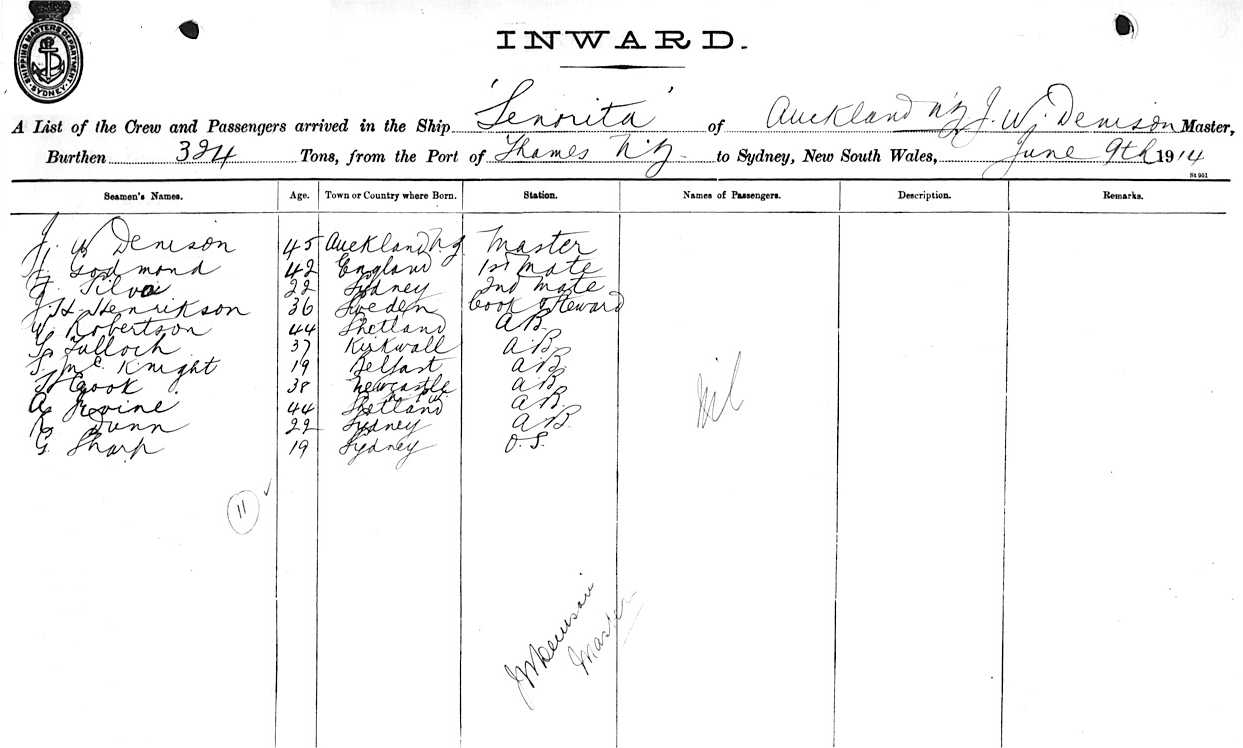 SHIPPING MASTERS DEPARTMENT
SYDNEY
INWARD.
A List of the Crew and Passengers arrived in the Ship 'Senorita' of Auckland N.Z. J. W. Denison Master,
Burthen 324 Tons, from the Port of Thames N.Z. to Sydney, New South Wales, June 9th 1914
St 951
Seamen's Names. Age. Town or Country where Born. Station. Names of Passengers. Description. Remarks.
J. W Denison 45 Auckland N.Z Master
Godmond 42 England 1st Mate
Silva 22 Sydney 2nd Mate
J. H. Henrikson 36 Sweden Cook & Steward
W. Robertson 44 Shetland AB
Tulloch 37 Kirkwall AB
McKnight 19 Belfast AB
Cook 38 Newcastle AB
A Irvine 44 Shetland AB
Dunn 22 Sydney AB
G. Sharp 19 Sydney O.S.
Nil
11
JW Denison
Master